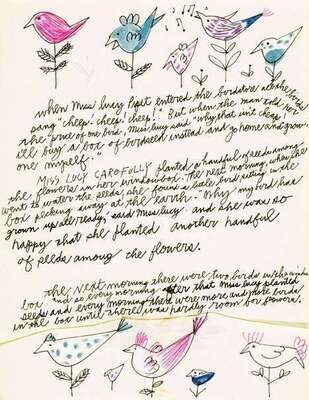 When Miss Lucy first entered the birdstore all the birds
sang "cheep! cheep! cheep!" But when the man told her
the price of one bird, Miss Lucy said "why that isn't cheap!
I'll buy a box of birdseed instead and go home and grow
one myself."
MISS LUCY CAREFULLY planted a handful of seeds among
the flowers in her window box. The next morning, when she
went to water the seeds she found a little bird sitting in the
box pecking away at the earth. "Why my bird has
grown up already," said Miss Lucy. and she was so
happy that she planted another handful
of seeds among the flowers.
The next morning there were two birds in the window
box and so every morning after that Miss Lucy planted
seeds and every morning there were more and more birds
in the box until there was hardly room for flowers.